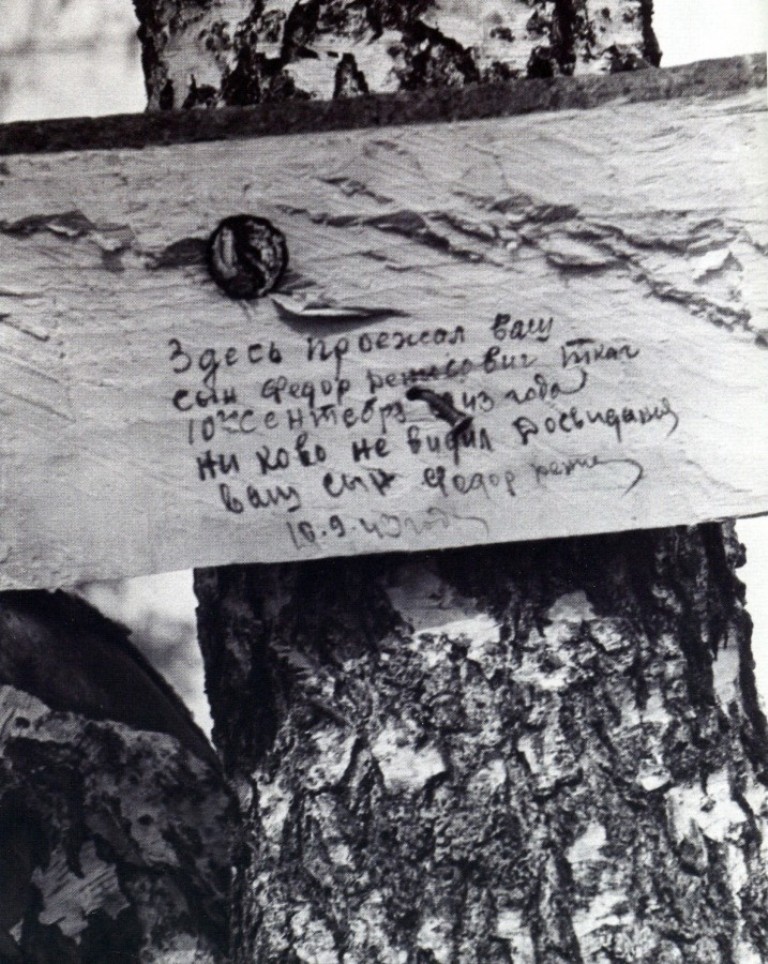 Здесь проежал ваш
сын Федор Денисович Ткач
10го сентебрь 43 года
ни ково не видил Досвидания
ваш сын Федор
10.9.43 году